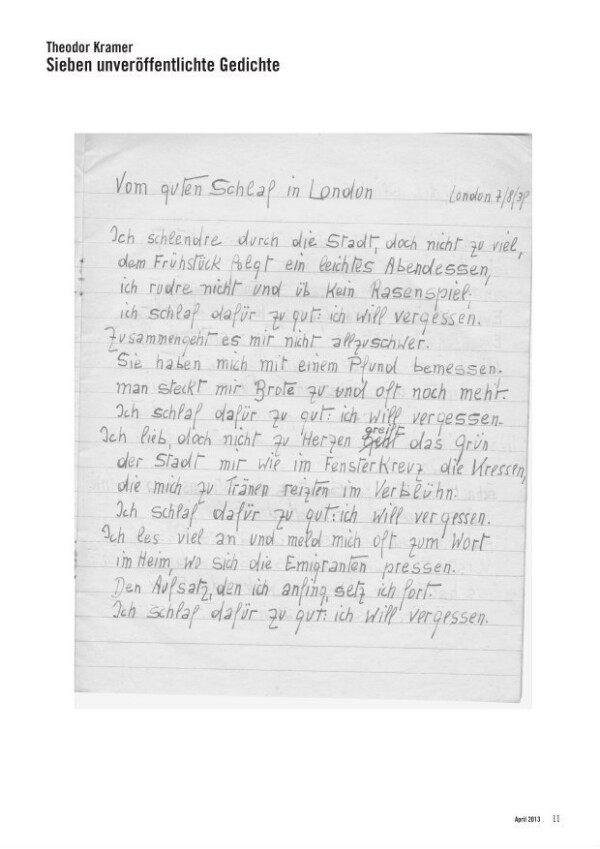 Theodor Kramer
Sieben unveröffentlichte Gedichte
Vom guten Schlaf in London
London 7/8/39
Ich schlendre durch die Stadt, doch nicht zu viel,
dem Frühstück folgt ein leichtes Abendessen,
ich rudre nicht und üb kein Rasenspiel;
ich schlaf dafür zu gut: ich will vergessen.
Zusammengeht es mir nicht allzuschwer:
Sie haben mich mit einem Pfund bemessen.
man steckt mir Brote zu und oft noch mehr.
Ich schlaf dafür zu gut: ich will vergessen.
Ich lieb, doch nicht zu Herzen greift das Grün
der Stadt mir wie im Fensterkreuz die Kressen,
die mich zu Tränen reizten im Verblühn.
Ich schlaf dafür zu gut: ich will vergessen.
Ich les viel an und meld mich oft zum Wort
im Heim, wo sich die Emigranten pressen.
Den Aufsatz, den ich anfing, setz ich fort.
Ich schlaf dafür zu gut: ich will vergessen.
April 2013 11